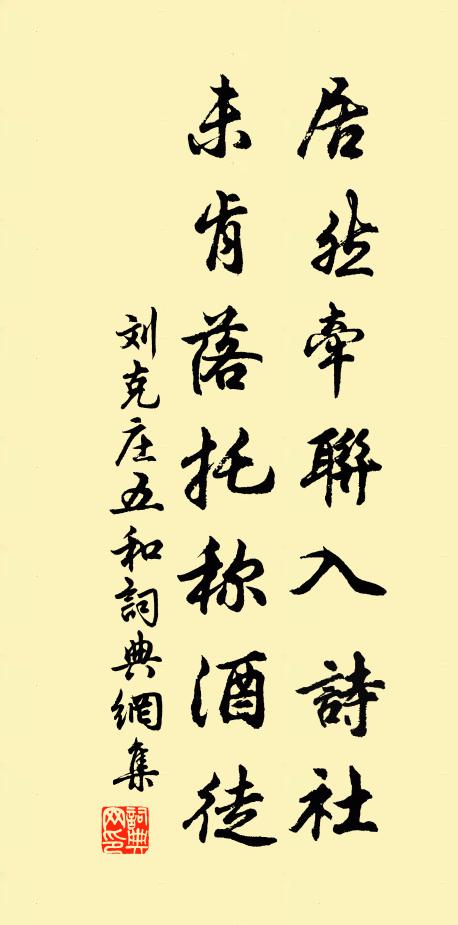 居然牵聯入詩社
未肯落托称酒徒
刘克庄五和詞典網集
詞典
网印